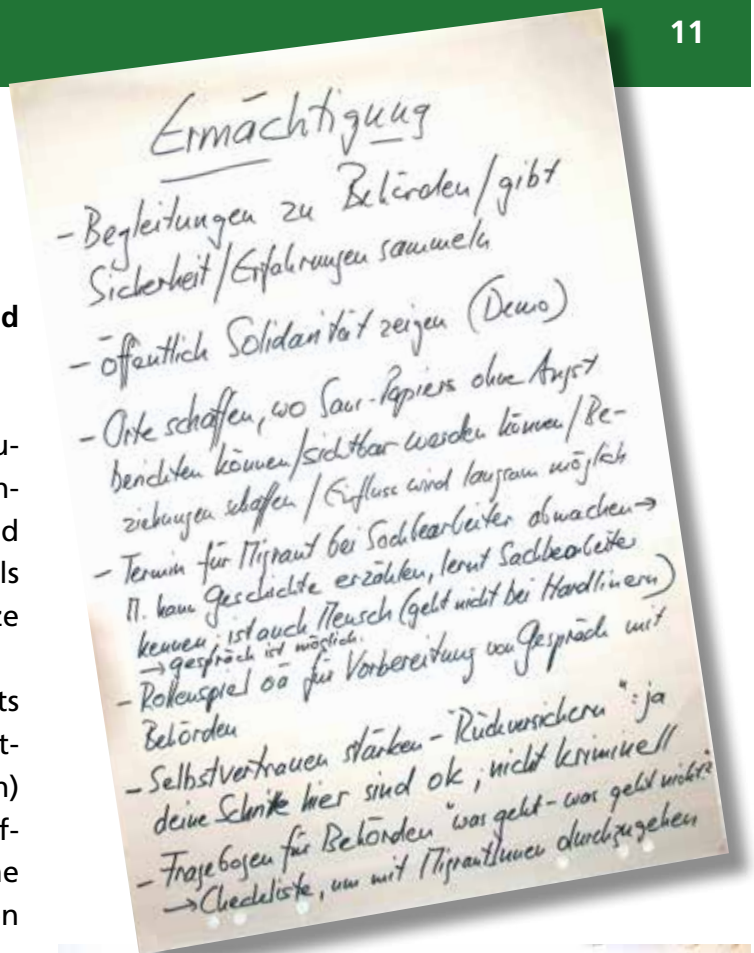 11
Ermächtigung
- Begleitungen zu Behörden/gibt
Sicherheit/Erfahrungen sammeln
- öffentlich Solidarität zeigen (Demo)
- Orte schaffen, wo Sans-Papiers ohne Angst
berichten können/sichtbar werden können/Be-
ziehungen schaffen/Einfluss wird langsam möglich
- Termin für Migrant bei Sachbearbeiter abmachen→
M. kann Geschichte erzählen, lernt Sachbearbeiter
kennen; ist auch Mensch (geht nicht bei Hardlinern)
→ gespräch ist möglich.
- Rollenspiel oä für Vorbereitung von Gespräch mit
Behörden
- Selbstvertrauen stärken - "Rückversichern": ja
deine Schritte hier sind ok, nicht kriminell
- Fragebogen für Behörden "was geht - was geht nicht?"
→ Checkliste, um mit MigrantInnen durchzugehen
d
u-
n-
d
ls
ze
ts
t-
n)
f-
ne
n